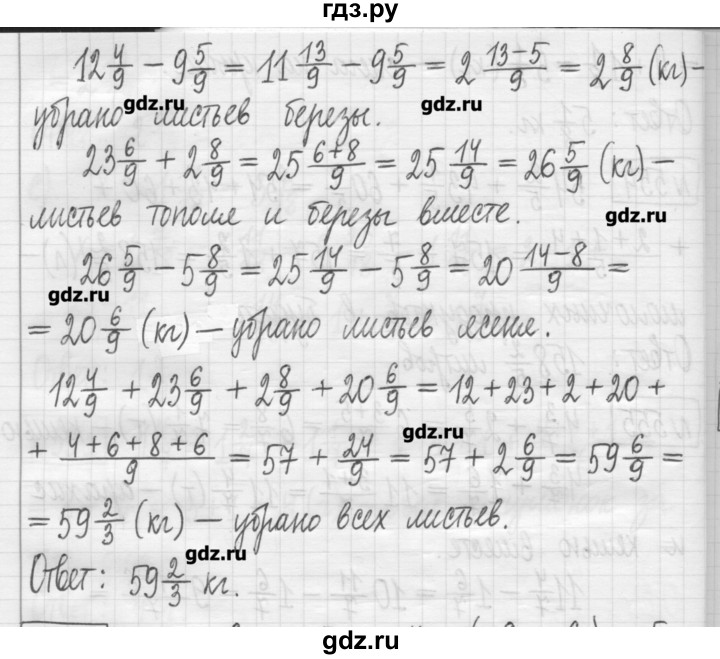 гдз.ру
12 4/9 − 9 5/9 = 11 13/9 − 9 5/9 = 2 (13−5)/9 = 2 8/9 (кг) –
gdz.ru gdz.ru
убрано листьев березы.
23 6/9 + 2 8/9 = 25 (6+8)/9 = 25 14/9 = 26 5/9 (кг) –
листьев тополя и березы вместе.
gdz.ru
26 5/9 − 5 8/9 = 25 14/9 − 5 8/9 = 20 (14−8)/9 =
gdz.ru
= 20 6/9 (кг) – убрано листьев ясеня.
12 4/9 + 23 6/9 + 2 8/9 + 20 6/9 = 12 + 23 + 2 + 20 +
gdz.ru
+ (4+6+8+6)/9 = 57 + 24/9 = 57 + 2 6/9 = 59 6/9 =
= 59 2/3 (кг) – убрано всех листьев.
gdz.ru
Ответ: 59 2/3 кг.
gdz.ru
gdz.ru